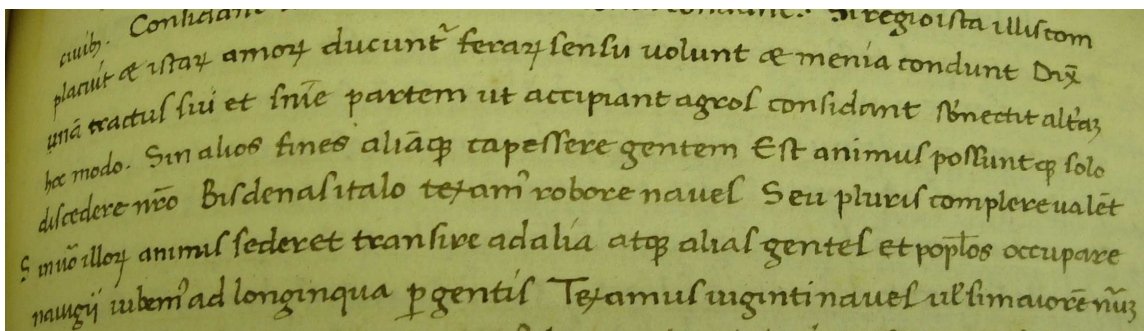 ciuib᷒. Considant Si regio ista illis com
placuit & istaꝝ amorꝝ ducunt᷑ feraꝝ sensu uolunt & menia condunt Dix̄
unā tractus sui et sīnīe partem ut accipiant agros considant altaꝝ
hoc modo. Sin alios fines aliāqꝫ capessere gentem Est animus possuntqꝫ solo
discedere nr̄o Bisdenas italo texam᷒ robore naues Seu pluris complere ualēt
S inuō illoꝝ animus sederet transire ad alia atqꝫ alias gentes et occupare
nauigij iubem᷒ ad longinqua ꝑgentis Texamus uiginti naues ul̄ si maiorē nūꝫ